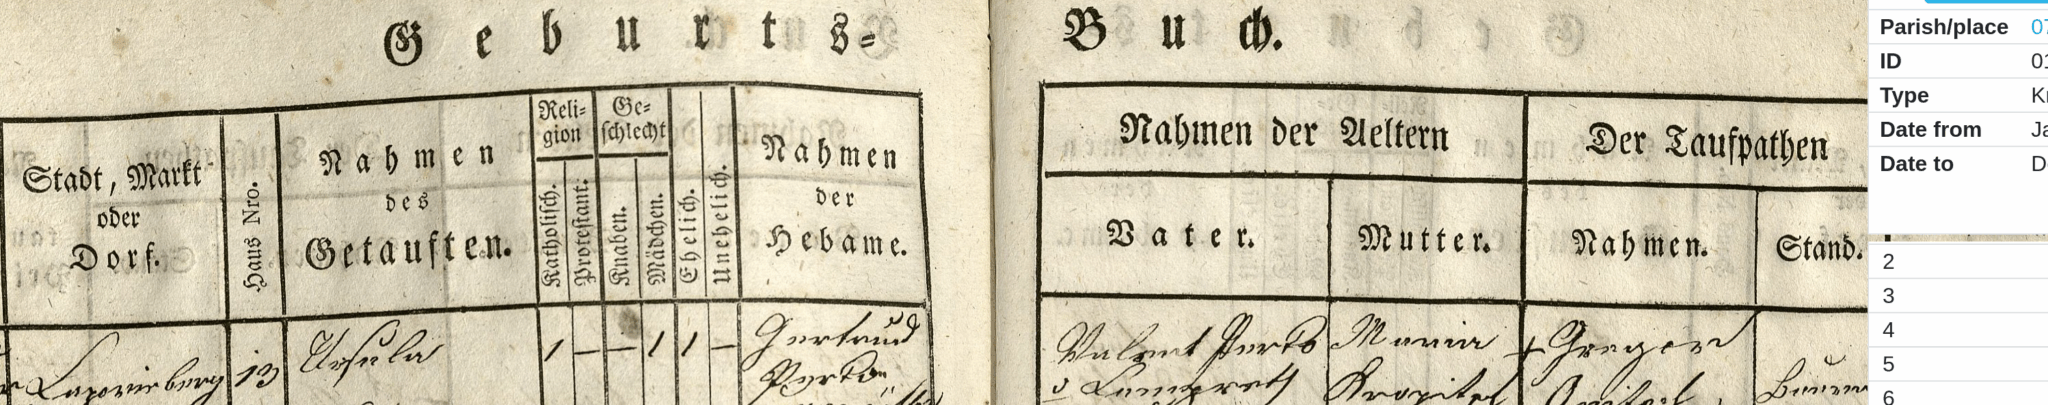 Geburts-
Buch.
Stadt, Markt
oder
Dorf.
Haus Nro.
Nahmen
des
Getauften.
Reli-
gion
Katholisch.
Protestant.
Ge-
schlecht
Knaben.
Mädchen.
Ehelich.
Unehelich.
Nahmen
der
Hebame.
Nahmen der Aeltern
Vater.
Mutter.
Der Taufpathen
Nahmen.
Stand.
13
Ursula
1 — — 1 1 —
Gertraud
Maria
Gregor
Parish/place 07
ID 01
Type
Date from
Date to
2
3
4
5
6